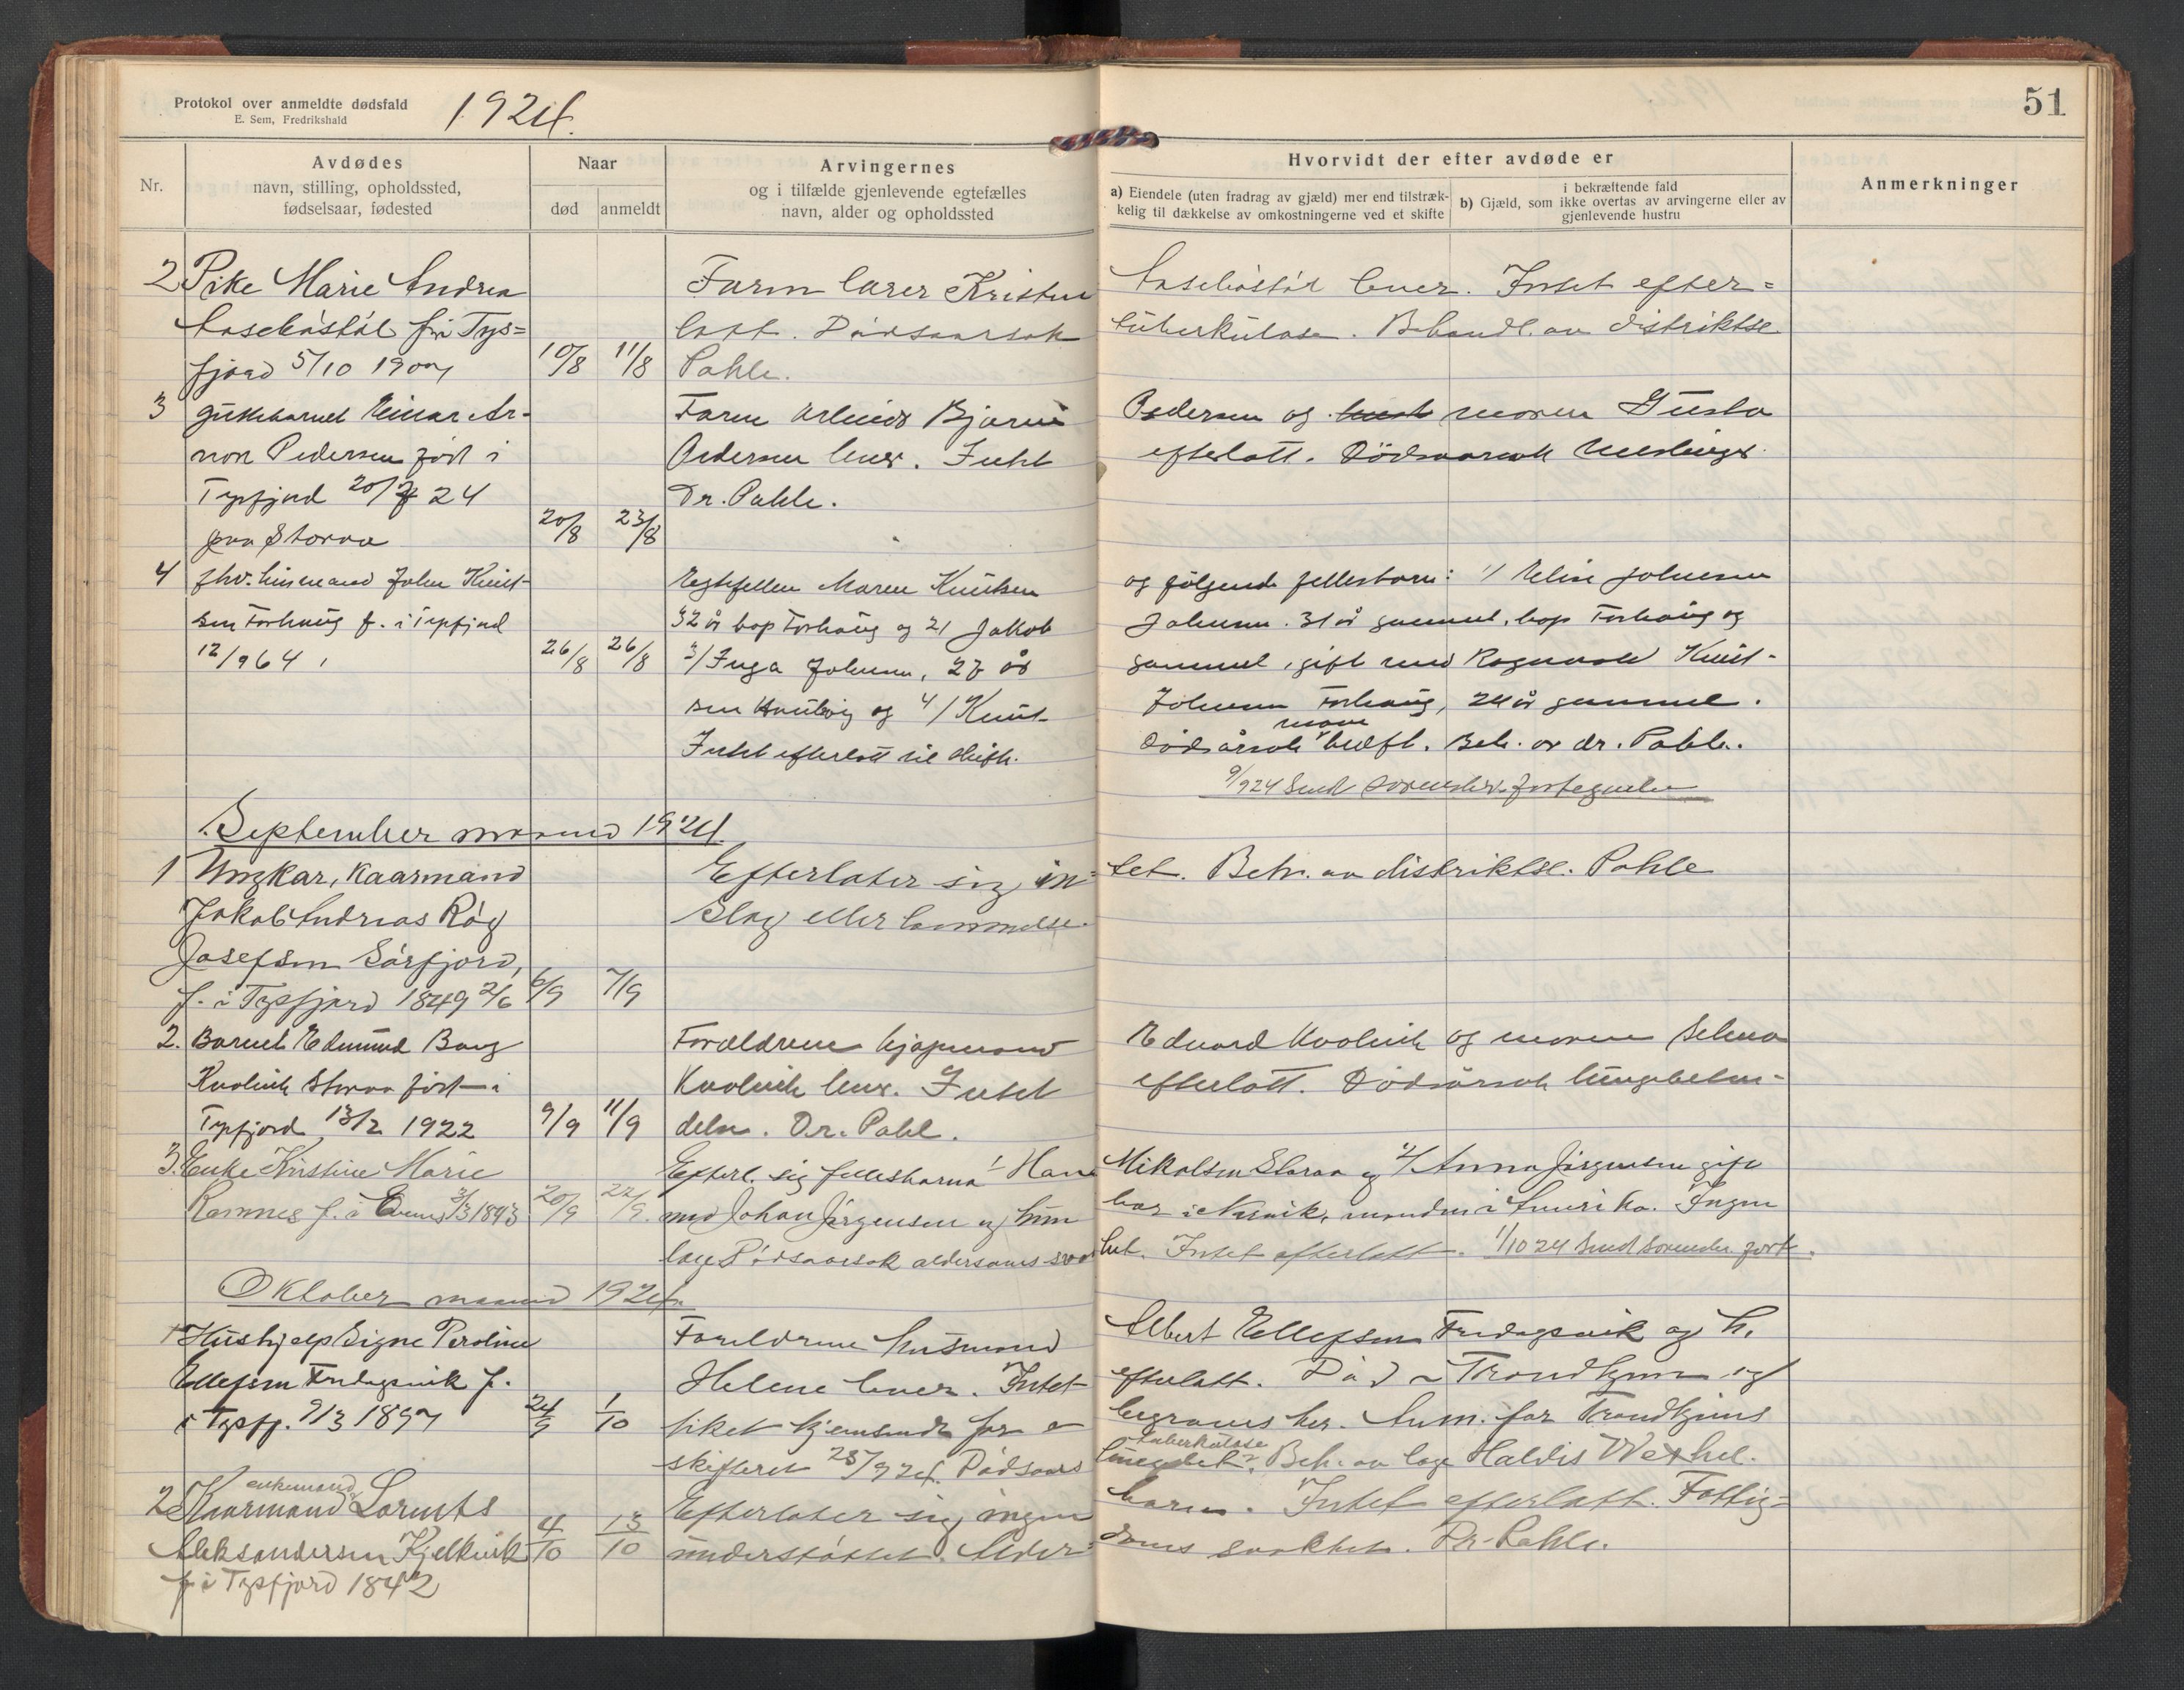 Protokol over anmeldte dødsfald
E. Sem, Fredrikshald
1924.
51
Nr.
Avdødes
navn, stilling, opholdssted,
fødselsaar, fødested
Naar
død
anmeldt
Arvingernes
og i tilfælde gjenlevende egtefælles
navn, alder og opholdssted
Hvorvidt der efter avdøde er
a) Eiendele (uten fradrag av gjæld) mer end tilstræk-
kelig til dækkelse av omkostningerne ved et skifte
i bekræftende fald
b) Gjæld, som ikke overtas av arvingerne eller av
gjenlevende hustru
Anmerkninger
2 Pike Marie Andrea
fra Tys=
fjord 5/10 1907 10/8 11/8
Faren lærer Kristen lever. Intet efter=
latt. Dødsaarsak tuberkulose. Behandl. av distriktsl.
Pahle.
3 guttebarnet Einar Ar-
non Pedersen født i
Tysfjord 20/7 24
paa Storaa 20/8 23/8
Faren arbeider Bjarne Pedersen og moren Gusta
Pedersen lever. Intet efterlatt. Dødsaarsak Meslinger.
Dr. Pahle.
4 fhv. husmand Johan Knut-
sen Forhaug f. i Tysfjord
12/9 64 26/8 26/8
Egtefellen Maren Knutsen og følgende fellesbarn: 1/ Elise Johnsen
32 år bop Forhaug og 2/ Jakob Johnsen. 31 år gammel, bop Forhaug og
3/ Inga Johnsen, 27 år gammel, gift med Ragnvald Knut-
sen og 4/ Knut Johnsen Forhaug, 24 år gammel.
Intet efterlatt til skifte. Dødsårsak mave kreft. Beh. av dr. Pahle.
9/9 24 Sendt sorenskr. fortegnelse
September maaned 1924
1 Ungkar, Kaarmand
Jakob Andreas Røg
Josefsen Sørfjord,
f. i Tysfjord 1849 2/6 6/9 7/9
Efterlater sig in= tet. Beh. av distriktsl. Pahle
Slag eller lammelse.
2. Barnet Edmund Bang
Kvalvik Storaa født i
Tysfjord 13/2 1922 9/9 11/9
Forældrene kjøpmand Edvard Kvalvik og moren Selma
Kvalvik lever. Intet efterlatt. Dødsårsak lungebeten-
delse. Dr. Pahle.
3. Enke Kristine Marie
Ramnes f. i Evenes 3/3 1843 20/9 22/9.
Efterl. sig fellesbarna 1/ Hans Mikalsen Storaa og 2/ Anna Jørgensen gift
med Johan Jørgensen og hun bor i Narvik, manden i Amerika. Ingen
læge Dødsaarsak alderdoms svak het. Intet efterlatt. 1/10 24 Sendt sorenskr. fort.
Oktober maaned 1924.
1 Hushjælp Signe Peroline
Ellefsen Fredagsvik f.
i Tysfj. 9/3 1897 24/9 1/10
Foreldrene husmand Albert Ellefsen Fredagsvik og h.
Helene lever. Intet efterlatt. Død i Trondhjem og
liket hjemsendt for at begraves her. Anm. for Trondhjems
skifteret 25/9 24. Dødsaars tuberkulose Beh. av læge Haldis Wexhel.
2 Kaarmand enkemand Lorents
Aleksandersen Kjelkvik
f. i Tysfjord 1842 4/10 13/10
Efterlater sig ingen barn. Intet efterlatt. Fattig=
understøttet. Alder= doms svakhet. Dr. Pahle.